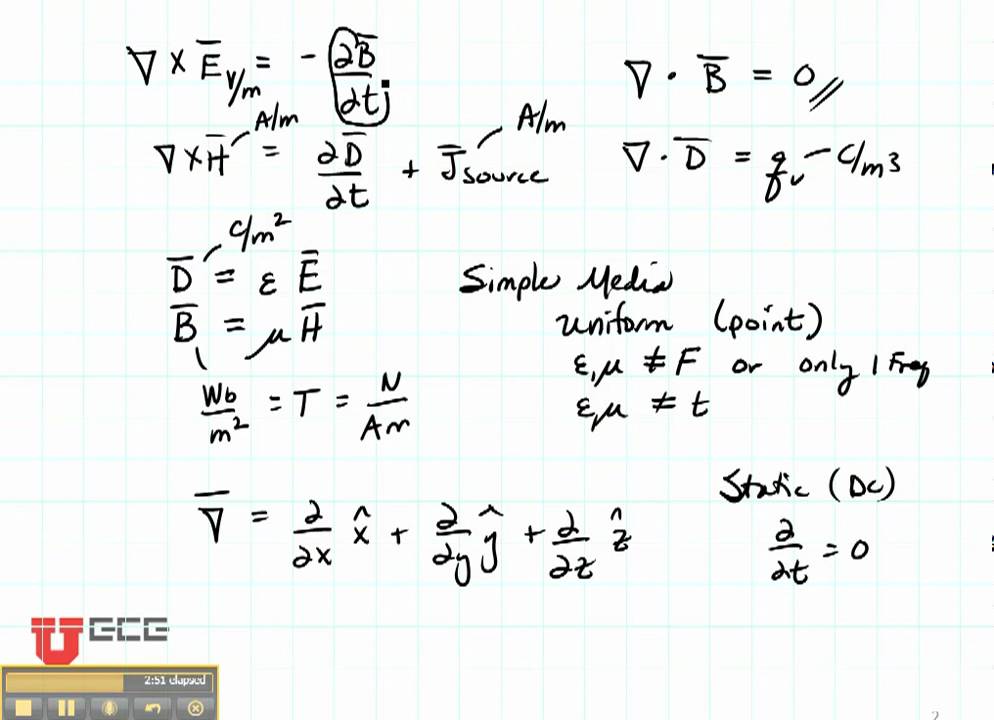 ∇ × E̅ V/m = - ∂B̅/∂t
∇ · B̅ = 0
∇ × H̅ A/m = ∂D̅/∂t + J̅source A/m
∇ · D̅ = qv C/m3
D̅ C/m² = ε E̅
B̅ = μ H̅
Wb/m² = T = N/Am
Simple Media
uniform (point)
ε,μ ≠ F or only 1 Freq
ε,μ ≠ t
∇̅ = ∂/∂x x̂ + ∂/∂y ŷ + ∂/∂z ẑ
Static (DC)
∂/∂t = 0
U ECE
2:51 elapsed
2